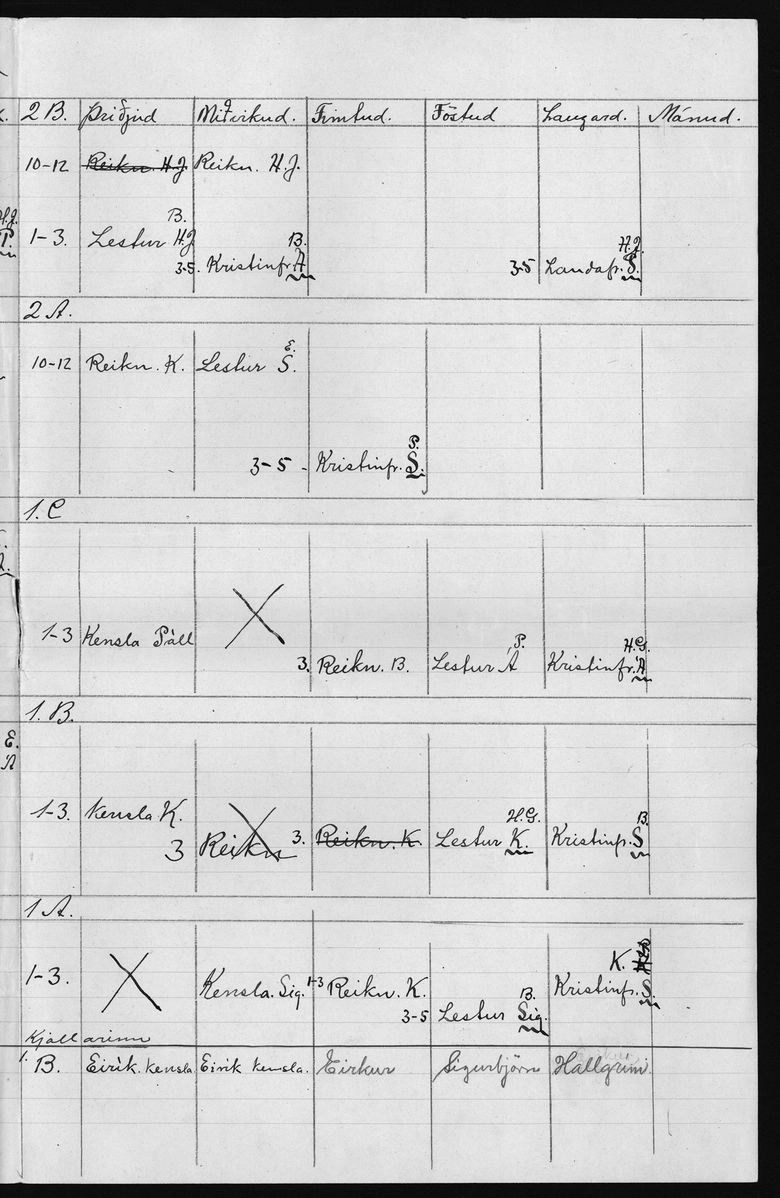 2 B. Þriðjud Miðvikud. Fimtud. Föstud Laugard. Mánud.
10-12 Reikn. H.J. Reikn. H.J.
B.
H.J. 1-3. Lestur H.J. B. H.J.
P. 3-5. Kristinfr. A 3-5 Landafr. S.
2 A.
E.
10-12 Reikn. K. Lestur S.
P.
3-5 - Kristinfr. S.
1. C
1-3 Kensla Páll P. H.G.
3. Reikn. B. Lestur Á Kristinfr. Á
1. B.
E.
1-3. Kensla K. H.G. B.
3 Reikn 3. Reikn. K. Lestur K. Kristinfr. S
1 A.
K.
1-3. Kensla. Sig. 1-3 Reikn. K. B. Kristinfr. S.
3-5 Lestur Sig.
Kjallarinn
1. B. Eirík. Kensla. Eirík Kensla. Eirkur Sigurbjörn Hallgrím